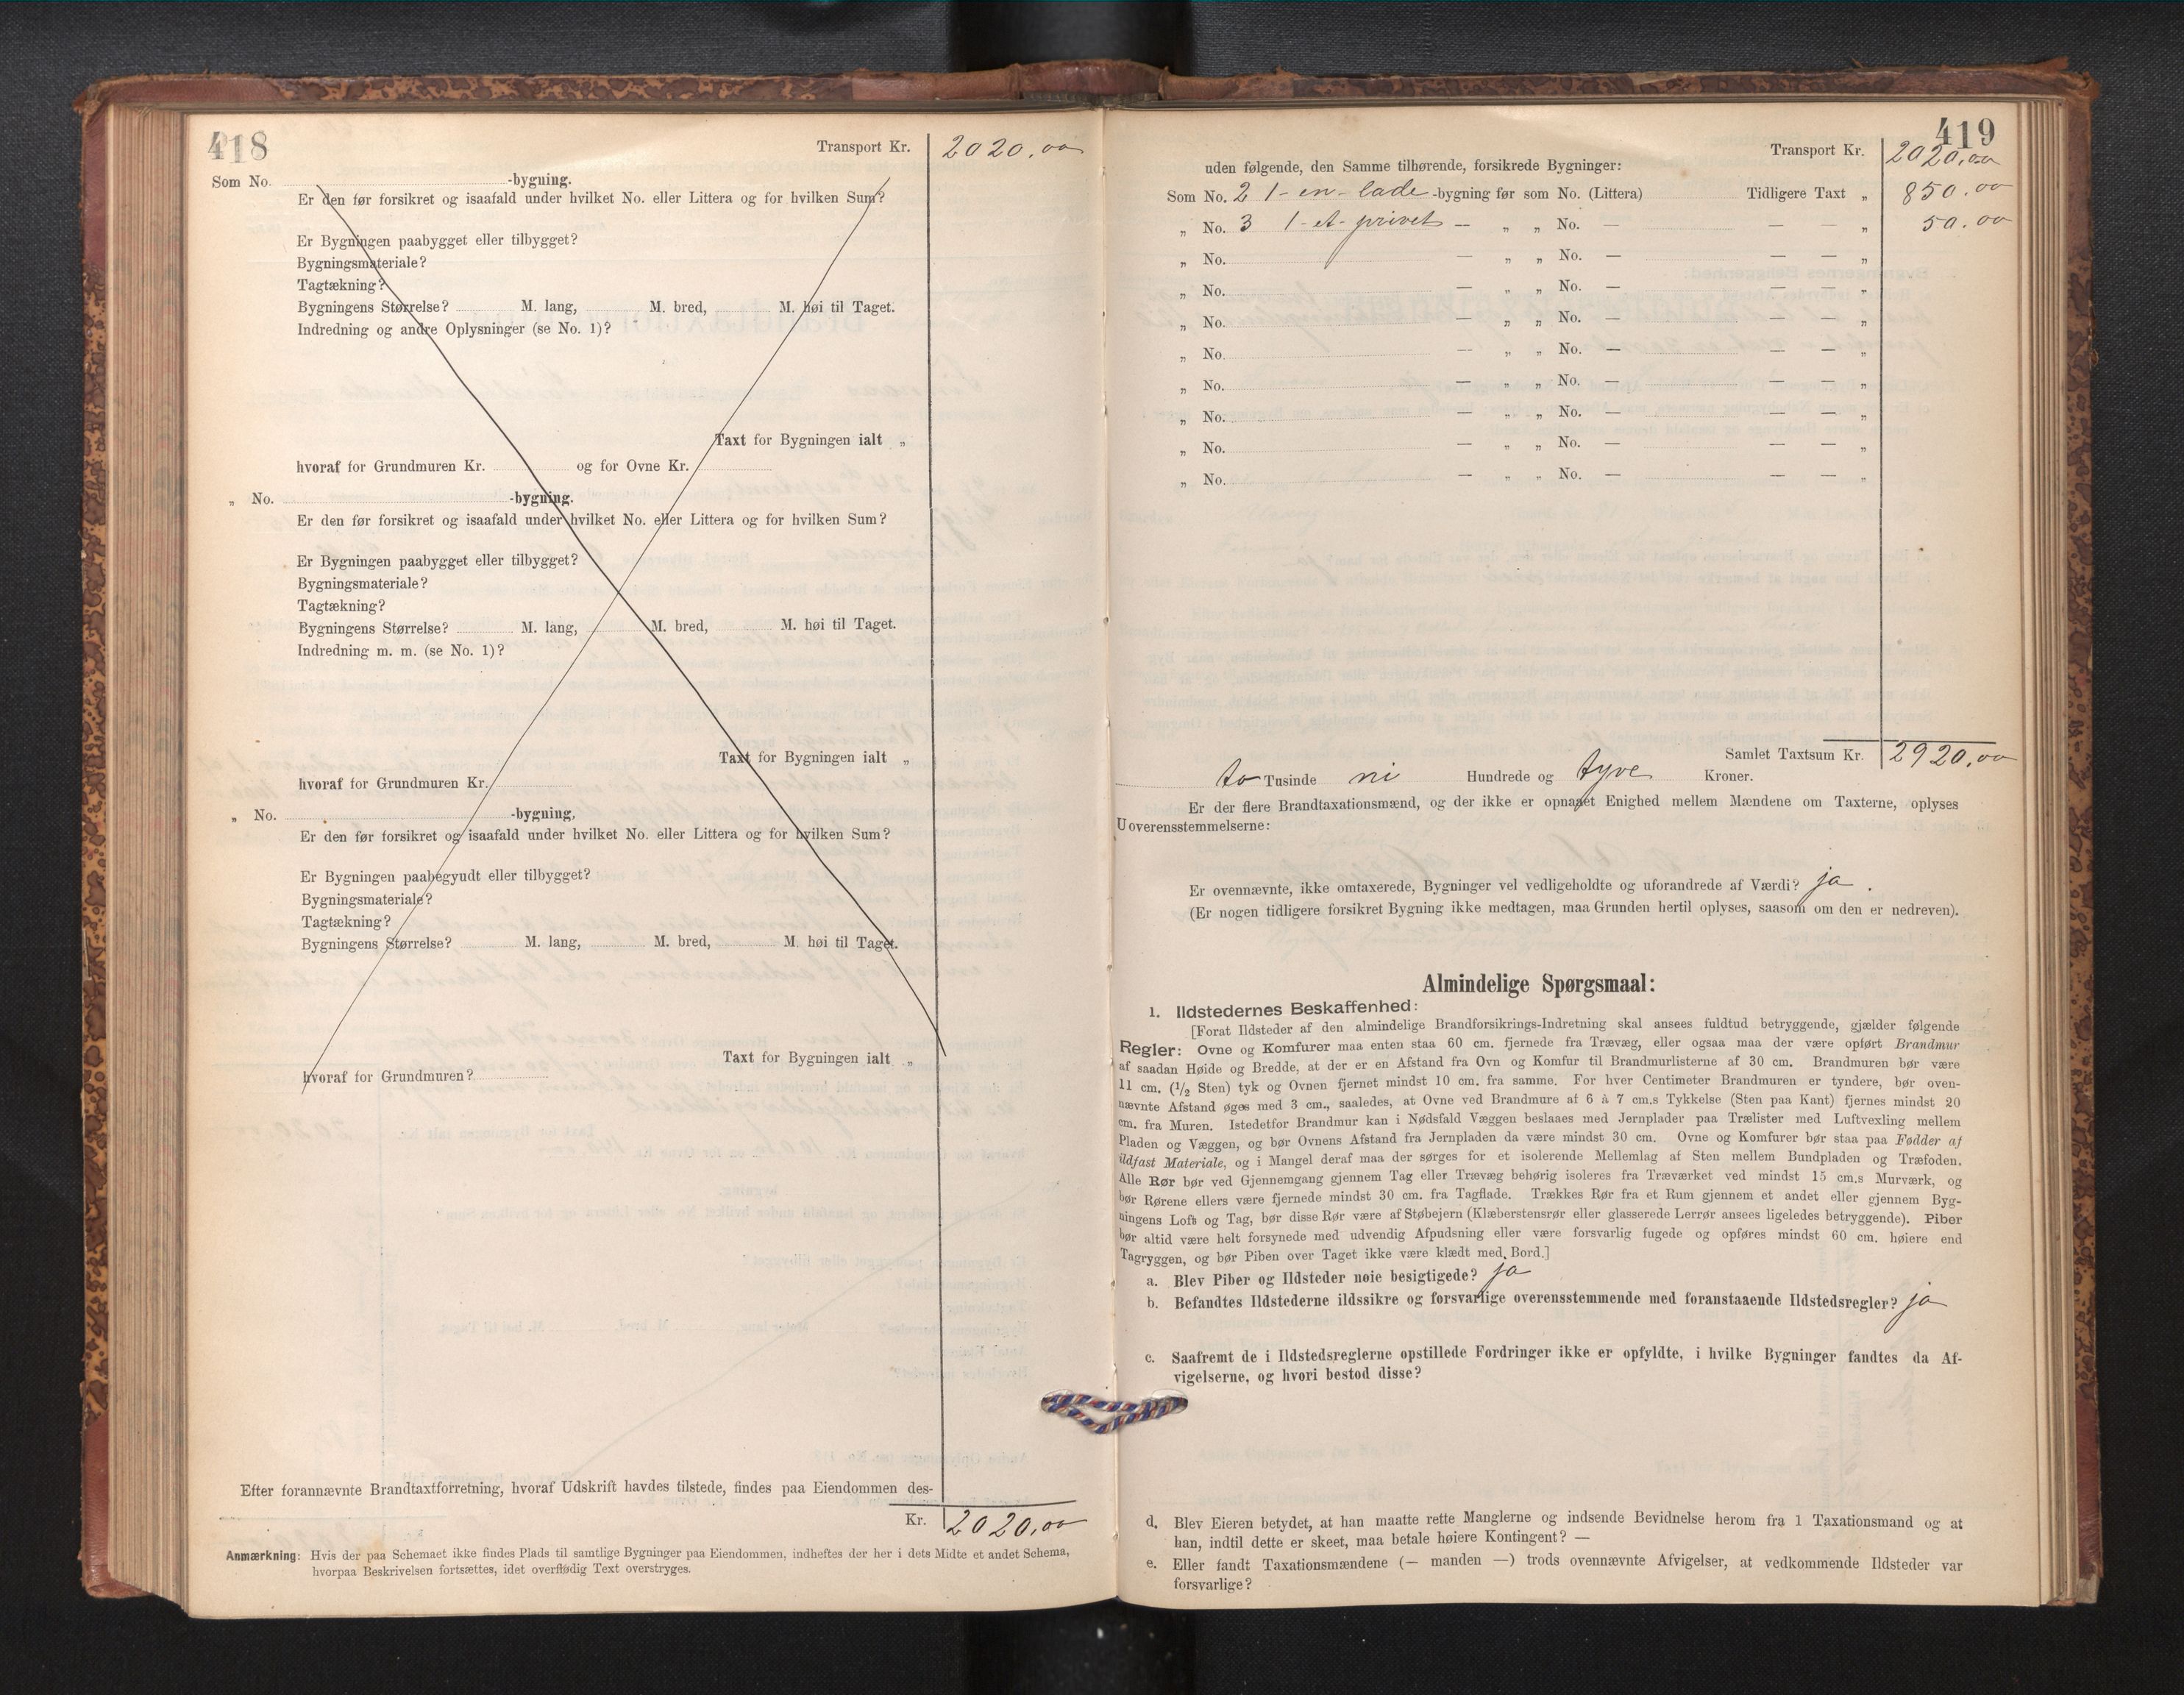 418
Transport Kr. 2020.00
Som No. -bygning.
Er den før forsikret og isaafald under hvilket No. eller Littera og for hvilken Sum?
Er Bygningen paabygget eller tilbygget?
Bygningsmateriale?
Tagtækning?
Bygningens Størrelse? M. lang, M. bred, M. høi til Taget.
Indredning og andre Oplysninger (se No. 1)?
Taxt for Bygningen ialt „
hvoraf for Grundmuren Kr. og for Ovne Kr.
„ No. -bygning.
Er den før forsikret og isaafald under hvilket No. eller Littera og for hvilken Sum?
Er Bygningen paabygget eller tilbygget?
Bygningsmateriale?
Tagtækning?
Bygningens Størrelse? M. lang, M. bred, M. høi til Taget.
Indredning m. m. (se No. 1)?
Taxt for Bygningen ialt „
hvoraf for Grundmuren Kr.
„ No. -bygning,
Er den før forsikret og isaafald under hvilket No. eller Littera og for hvilken Sum?
Er Bygningen paabegyndt eller tilbygget?
Bygningsmateriale?
Tagtækning?
Bygningens Størrelse? M. lang, M. bred, M. høi til Taget.
Taxt for Bygningen ialt „
hvoraf for Grundmuren?
Efter forannævnte Brandtaxtforretning, hvoraf Udskrift havdes tilstede, findes paa Eiendommen des-
Kr. 2020.00
Anmærkning: Hvis der paa Schemaet ikke findes Plads til samtlige Bygninger paa Eiendommen, indheftes der her i dets Midte et andet Schema,
hvorpaa Beskrivelsen fortsættes, idet overflødig Text overstryges.
419
Transport Kr. 2020.00
uden følgende, den Samme tilhørende, forsikrede Bygninger:
Som No. 2 1-en-lade-bygning før som No. (Littera) Tidligere Taxt „ 850.00
„ No. 3 1-et-privet — „ „ No. — — — „ 50.00
„ No. — „ „ No. — — — „
„ No. — „ „ No. — — — „
„ No. — „ „ No. — — — „
„ No. — „ „ No. — — — „
„ No. — „ „ No. — — — „
„ No. — „ „ No. — — — „
„ No. — „ „ No. — — — „
„ No. — „ „ No. — — — „
Samlet Taxtsum Kr. 2920.00
to Tusinde ni Hundrede og tyve Kroner.
Er der flere Brandtaxationsmænd, og der ikke er opnaaet Enighed mellem Mændene om Taxterne, oplyses
Uoverensstemmelserne:
Er ovennævnte, ikke omtaxerede, Bygninger vel vedligeholdte og uforandrede af Værdi? ja.
(Er nogen tidligere forsikret Bygning ikke medtagen, maa Grunden hertil oplyses, saasom om den er nedreven).
Almindelige Spørgsmaal:
1. Ildstedernes Beskaffenhed:
[Forat Ildsteder af den almindelige Brandforsikrings-Indretning skal ansees fuldtud betryggende, gjælder følgende
Regler: Ovne og Komfurer maa enten staa 60 cm. fjernede fra Trævæg, eller ogsaa maa der være opført Brandmur
af saadan Høide og Bredde, at der er en Afstand fra Ovn og Komfur til Brandmurlisterne af 30 cm. Brandmuren bør være
11 cm. (1/2 Sten) tyk og Ovnen fjernet mindst 10 cm. fra samme. For hver Centimeter Brandmuren er tyndere, bør oven-
nævnte Afstand øges med 3 cm., saaledes, at Ovne ved Brandmure af 6 à 7 cm.s Tykkelse (Sten paa Kant) fjernes mindst 20
cm. fra Muren. Istedetfor Brandmur kan i Nødsfald Væggen beslaaes med Jernplader paa Trælister med Luftvexling mellem
Pladen og Væggen, og bør Ovnens Afstand fra Jernpladen da være mindst 30 cm. Ovne og Komfurer bør staa paa Fødder af
ildfast Materiale, og i Mangel deraf maa der sørges for et isolerende Mellemlag af Sten mellem Bundpladen og Træfoden.
Alle Rør bør ved Gjennemgang gjennem Tag eller Trævæg behørig isoleres fra Træværket ved mindst 15 cm.s Murværk, og
bør Rørene ellers være fjernede mindst 30 cm. fra Tagflade. Trækkes Rør fra et Rum gjennem et andet eller gjennem Byg-
ningens Loft og Tag, bør disse Rør være af Støbejern (Klæberstensrør eller glasserede Lerrør ansees ligeledes betryggende). Piber
bør altid være helt forsynede med udvendig Afpudsning eller være forsvarlig fugede og opføres mindst 60 cm. høiere end
Tagryggen, og bør Piben over Taget ikke være klædt med Bord.]
a. Blev Piber og Ildsteder nøie besigtigede? ja
b. Befandtes Ildstederne ildssikre og forsvarlige overensstemmende med foranstaaende Ildstedsregler? ja
c. Saafremt de i Ildstedsreglerne opstillede Fordringer ikke er opfyldte, i hvilke Bygninger fandtes da Af-
vigelserne, og hvori bestod disse?
d. Blev Eieren betydet, at han maatte rette Manglerne og indsende Bevidnelse herom fra 1 Taxationsmand og at
han, indtil dette er skeet, maa betale høiere Kontingent? —
e. Eller fandt Taxationsmændene (— manden —) trods ovennævnte Afvigelser, at vedkommende Ildsteder var
forsvarlige?